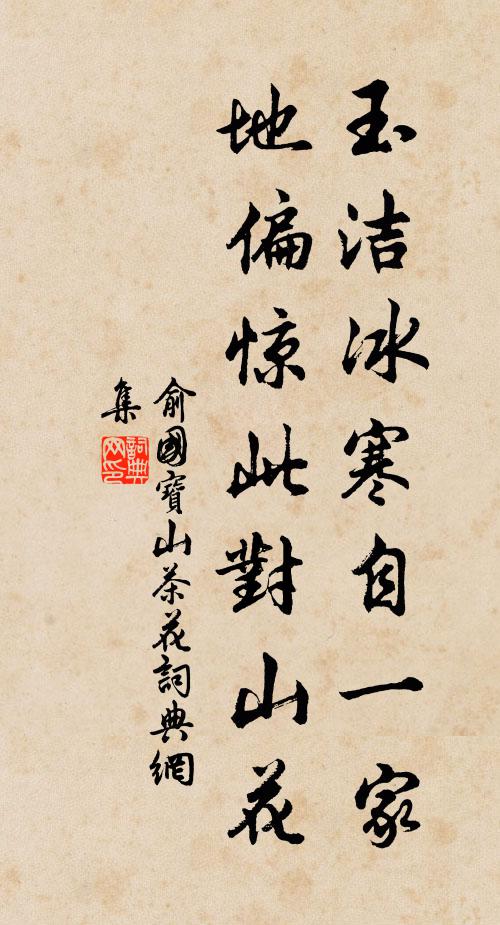 玉洁冰寒自一家
地偏惊此對山花
俞國寶山茶花詞典網
集
詞典网印